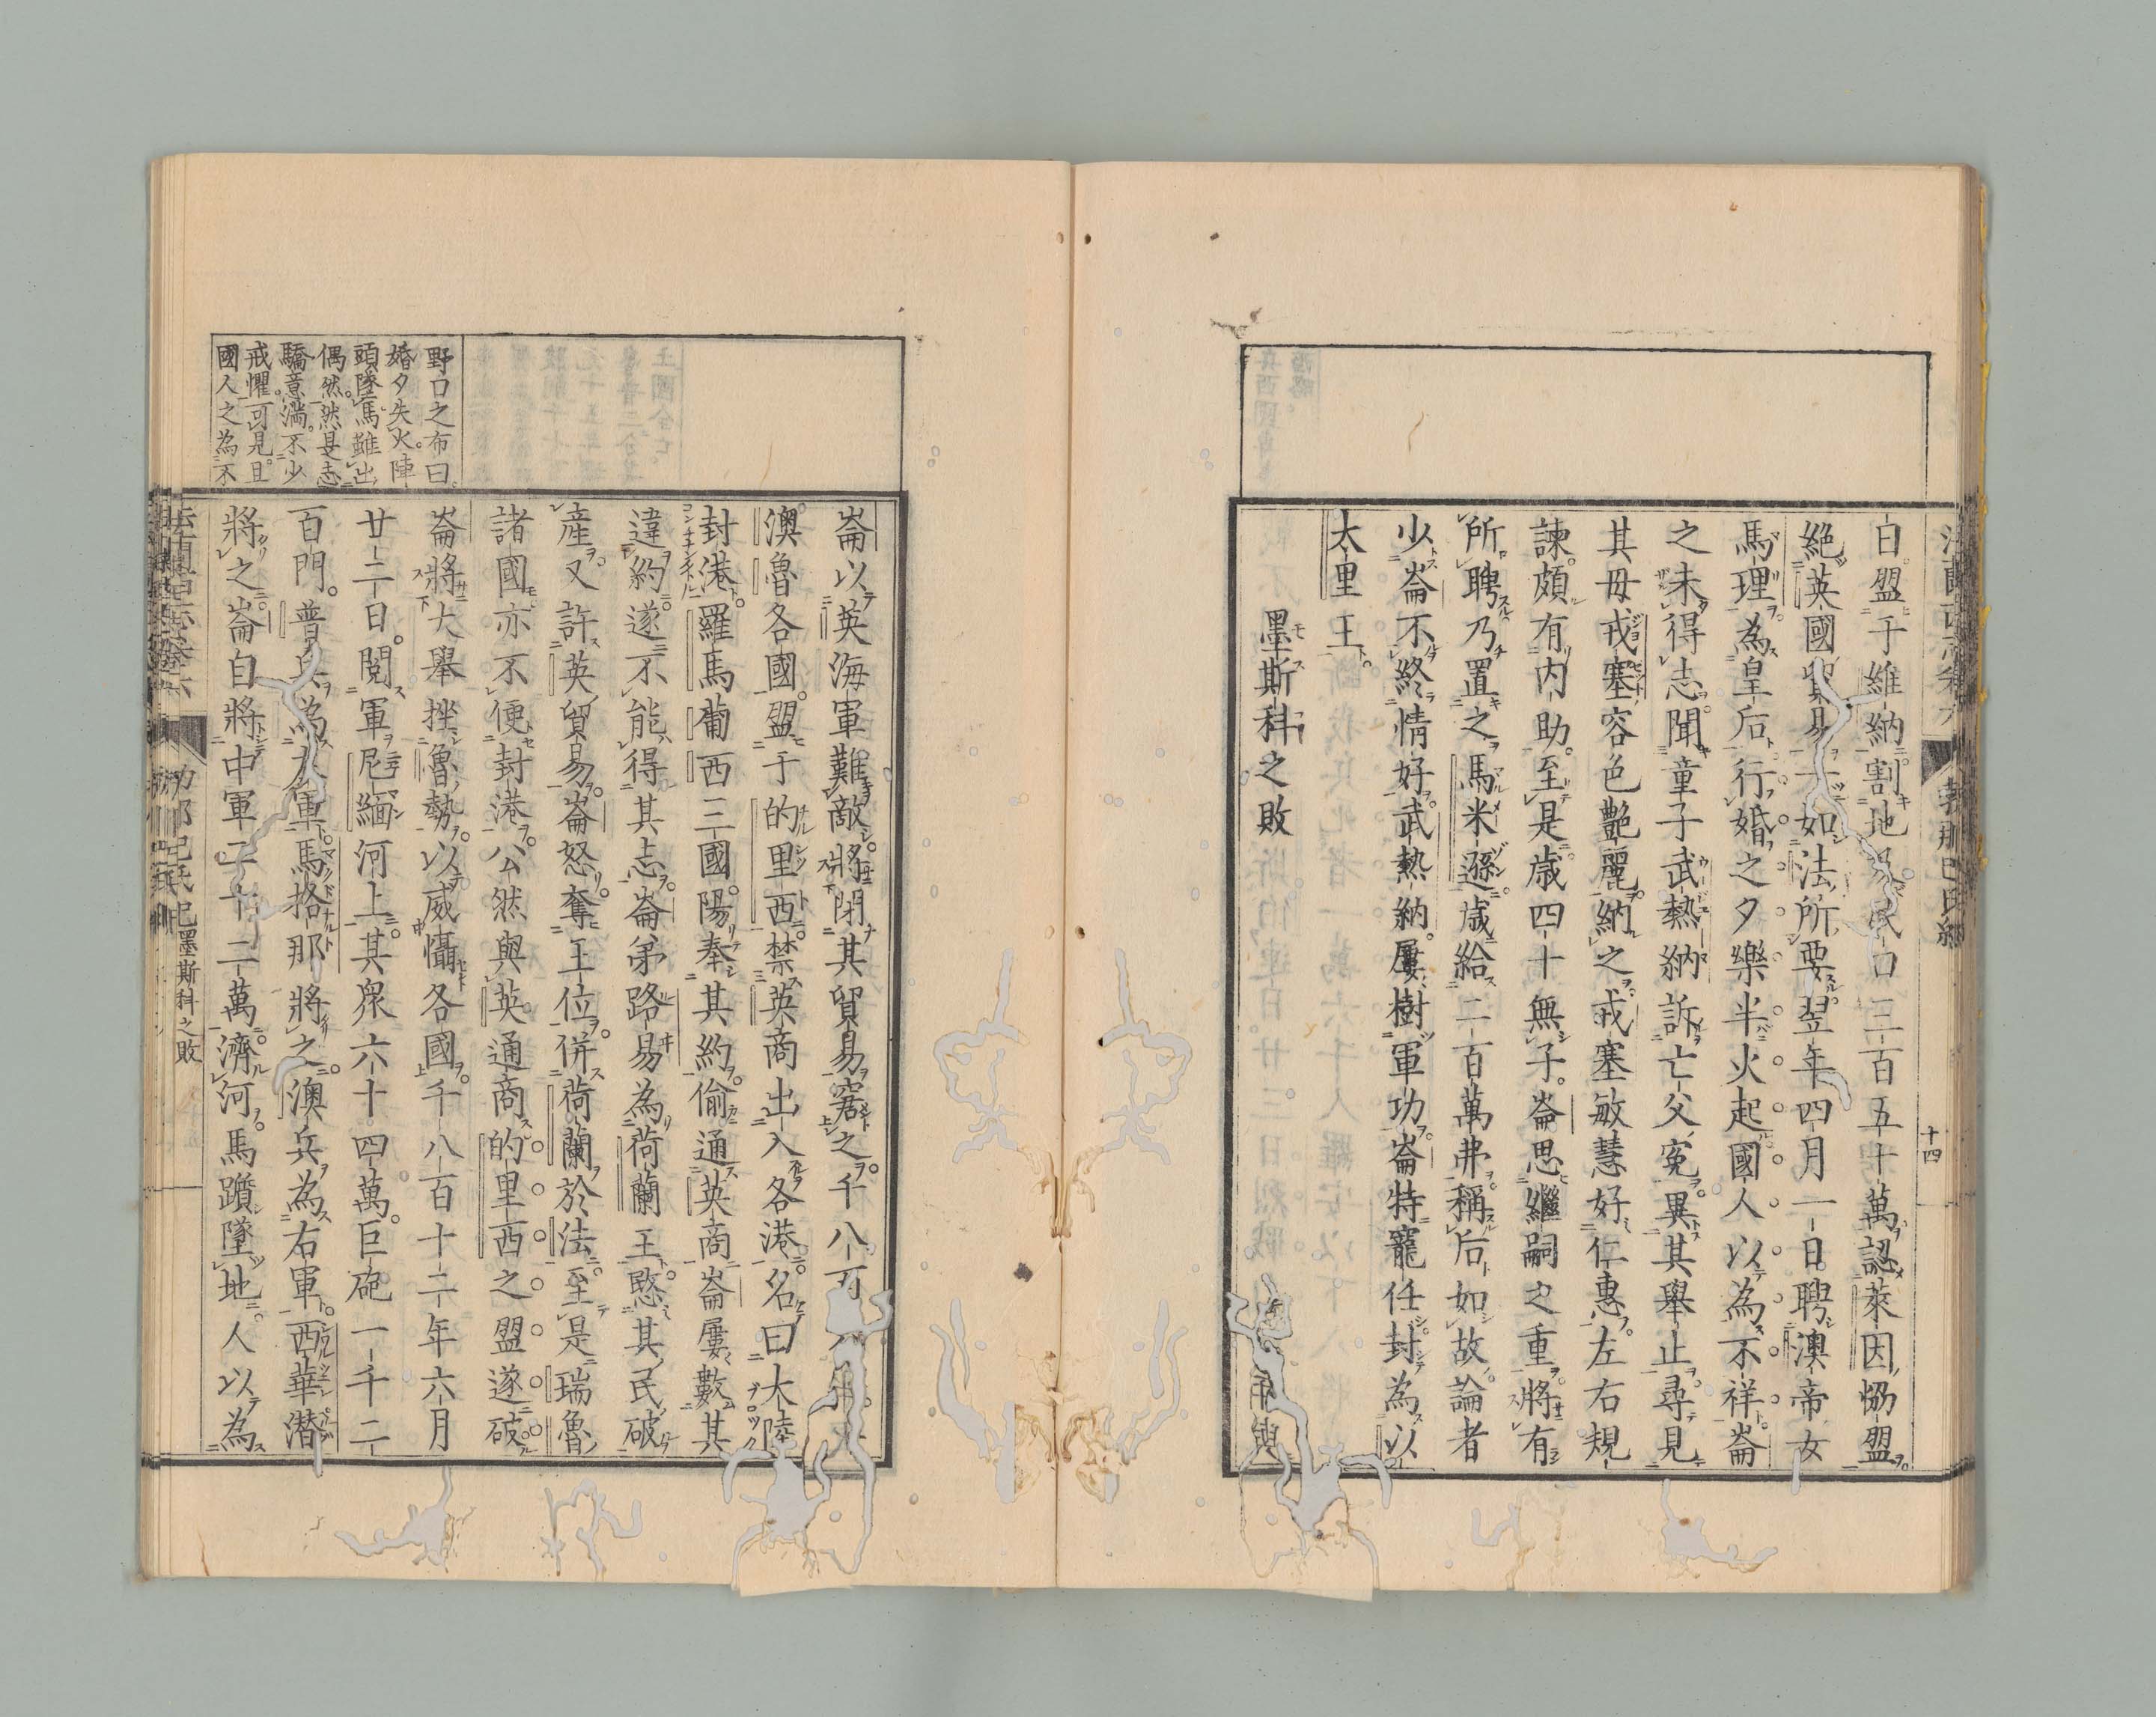 十四
白盟于維納割地民口三百五十萬認萊因恊盟
絶英國貿易一如法所要翌年四月一日聘澳帝女
馬理為皇后行婚之夕樂半火起國人以為不祥崙
之未得志聞童子武熱納訴亡父寃異其擧止尋見
其母戎塞容色艷麗納之戎塞敏慧好仁惠左右規
諫頗有内助至是歳四十無子崙思繼嗣之重將有
所聘乃置之馬米遜歳給二百萬弗稱后如故論者
少崙不終情好武熱納屢樹軍功崙特寵任封為以
太里王
墨斯科之敗
崙以英海軍難敵將閉其貿易窘之千八百
澳魯各國盟于的里西禁英商出入各港名曰大陸
封港羅馬葡西三國陽奉其約偷通英商崙屢數其
違約遂不能得其志崙弟路易為荷蘭王愍其民破
産又許英貿易崙怒奪王位併荷蘭於法至是瑞魯
諸國亦不便封港公然與英通商的里西之盟遂破
崙將大擧挫魯勢以威懾各國千八百十二年六月
廿二日閲軍尼緬河上其衆六十四萬巨砲一千二
百門普兵為左軍馬格那將之澳兵為右軍西華潜
將之崙自將中軍二十二萬濟河馬躓墜地人以為
野口之布曰
婚夕失火陣
頭墜馬雖出
偶然然是志
驕意滿不少
戒懼可見且
國人之為不
墨斯科之敗